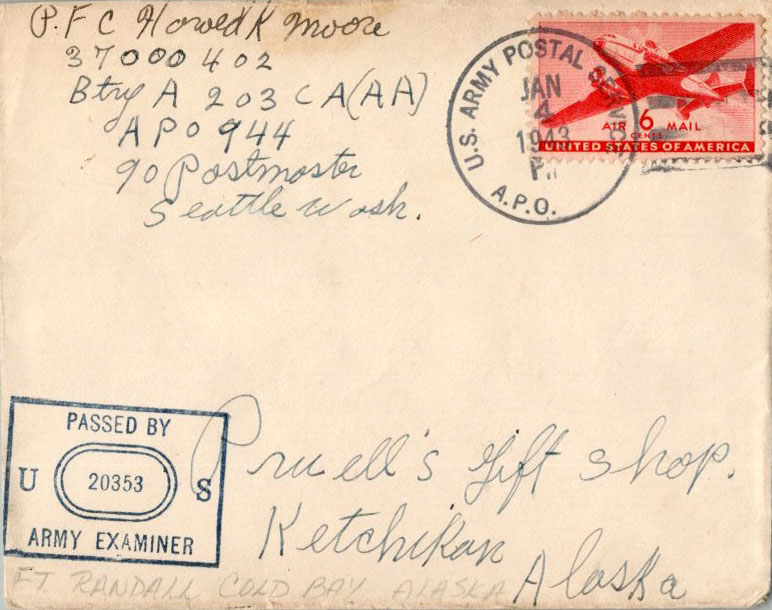 P.F C Howed K Moore
37000402
Btry A 203 C A (AA)
APO 944
90 Postmaster
Seattle Wash.
U.S. ARMY POSTAL SERVICE
JAN
4
1943
A.P.O.
AIR 6 MAIL
CENTS
UNITED STATES OF AMERICA
PASSED BY
U 20353 S
ARMY EXAMINER
Pruell's Gift Shop.
Ketchikan
Alaska
FT RANDALL COLD BAY ALASKA